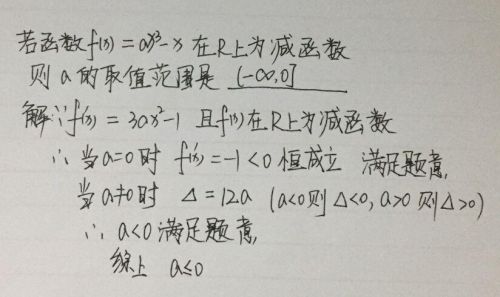 若函数f(x)=ax³-x 在R上为减函数
则 a 的取值范围是 (-∞,0]
解:∵f'(x)=3ax²-1 且f(x)在R上为减函数
∴ 当a=0时 f'(x)=-1<0 恒成立 满足题意,
当a≠0时 Δ=12a (a<0则Δ<0,a>0则Δ>0)
∴ a<0满足题意,
综上 a≤0